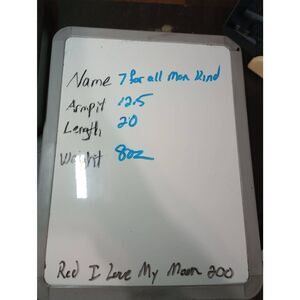 Name 7 for all Man Kind
Armpit 12.5
Length 20
Weight 8oz
Red I Love My Mom 200